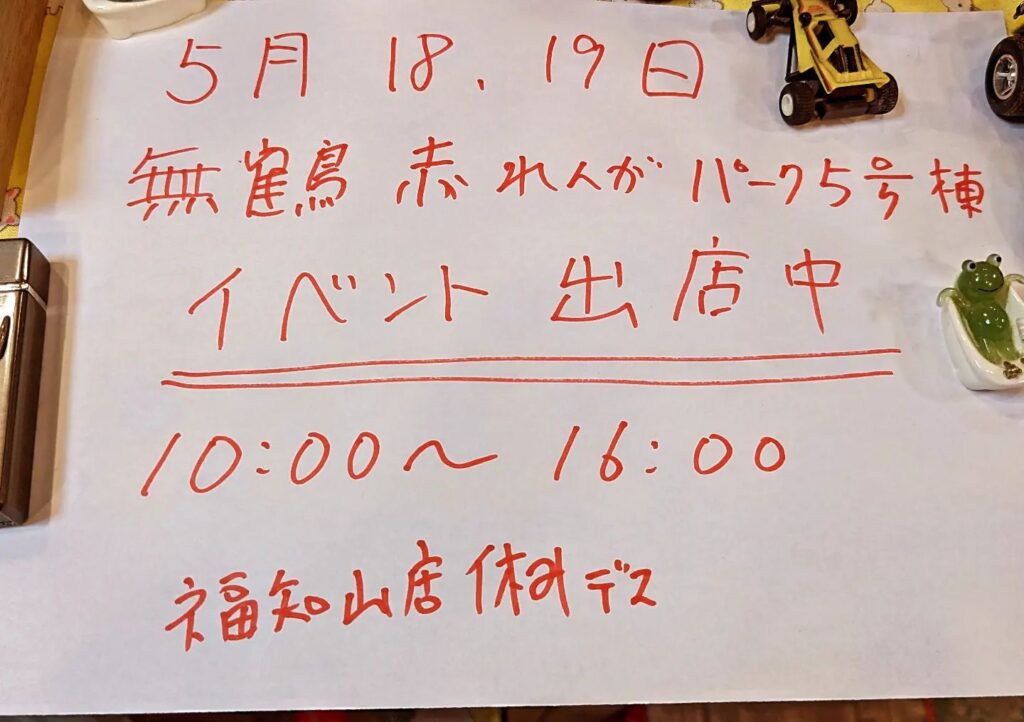 5月 18、19日
無鶴 赤れんがパーク5号棟
イベント 出店中
10:00〜 16:00
福知山店休みデス